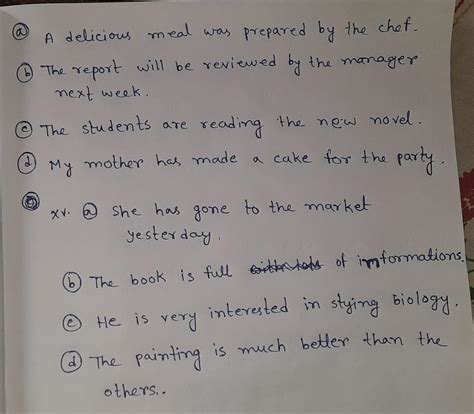 (a) A delicious meal was prepared by the chef.
(b) The report will be reviewed by the manager
next week.
(c) The students are reading the new novel.
(d) My mother has made a cake for the party.
xv. (a) She has gone to the market
yesterday.
(b) The book is full of informations.
(c) He is very interested in stying biology.
(d) The painting is much better than the
others.